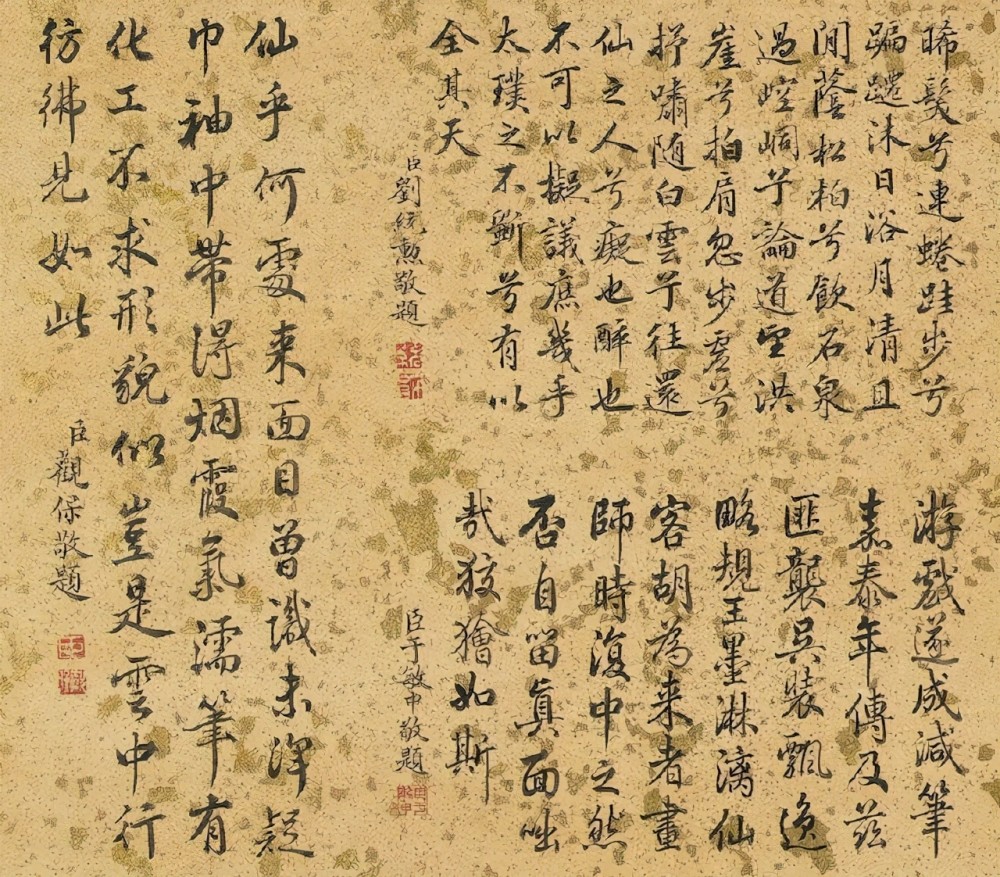 晞髮兮連蜷跬步兮
蹁躚沐日浴月清且
閒蔭松柏兮飲石泉
過崆峒兮論道望洪
崖兮拍肩忽步虛兮
抒嘯随白雲兮往還
仙之人兮癡也醉也
不可以擬議庶幾乎
太璞之不斵兮有以
全其天
臣劉統勳敬題
游戲遂成減筆
嘉泰年傳及茲
匪襲吳裝飄逸
略規王墨淋漓仙
客胡為来者畫
師時復中之然
否自留真面咄
哉狡獪如斯
臣于敏中敬題
仙乎何處来面目曾識未渾疑
巾袖中帶得烟霞氣濡筆有
化工不求形貌似豈是雲中行
彷彿見如此
臣觀保敬題